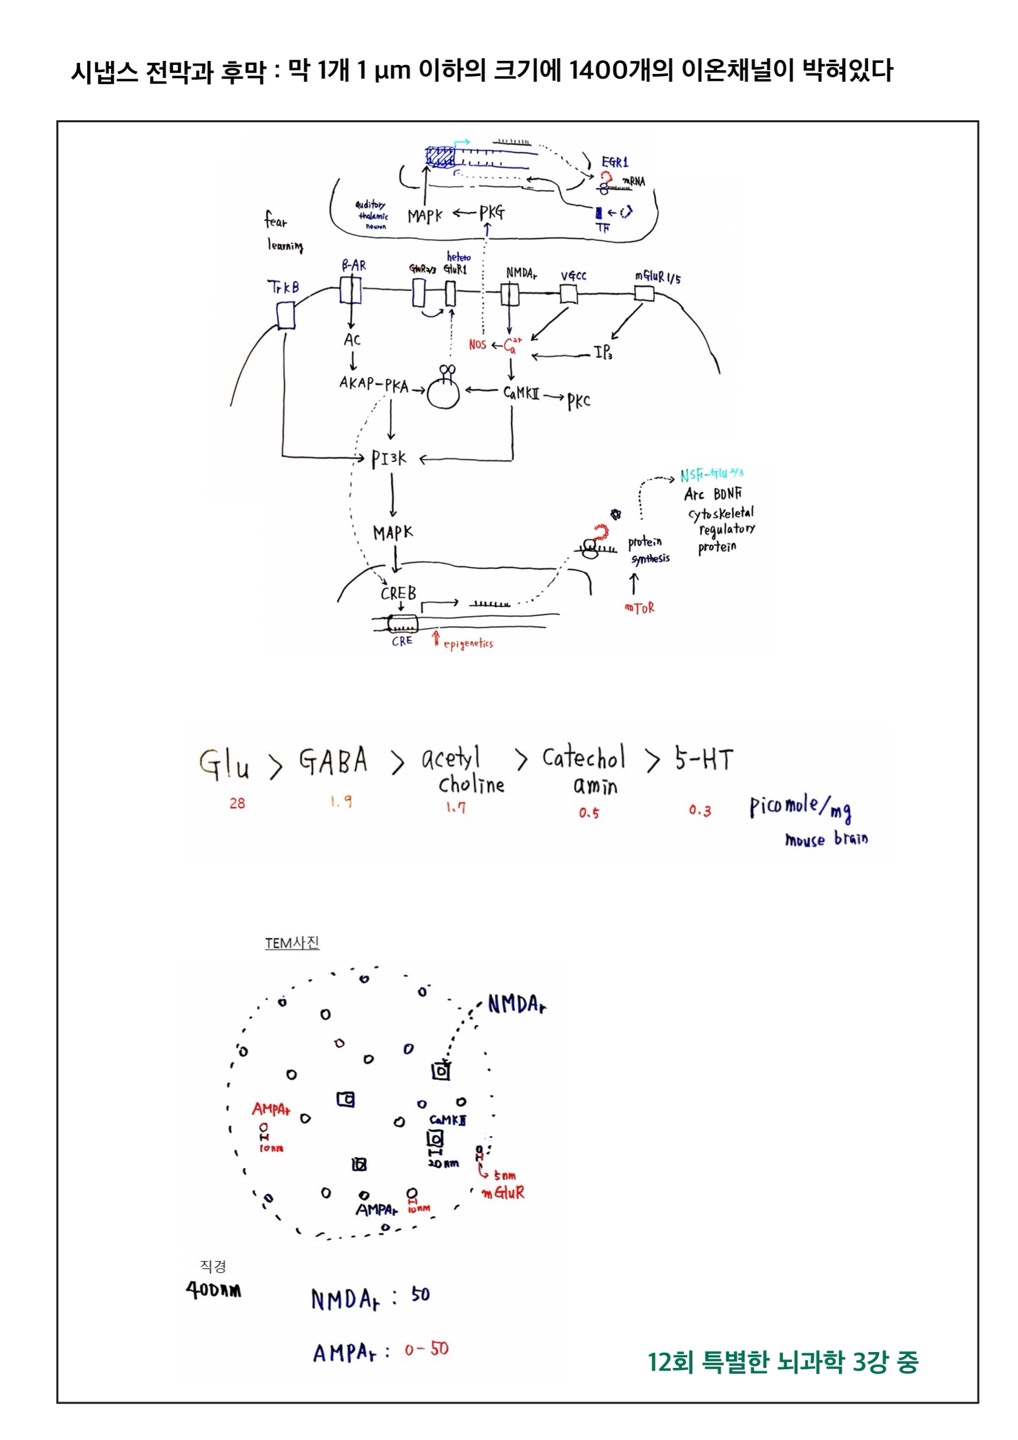 시냅스 전막과 후막 : 막 1개 1 μm 이하의 크기에 1400개의 이온채널이 박혀있다
EGR1
mRNA
auditory
thalamic
neuron
MAPK
PKG
TF
fear
learning
TrkB
β-AR
GluR2/3
hetero
GluR1
NMDAr
VGCC
mGluR1/5
AC
NOS
Ca2+
IP3
AKAP-PKA
CaMKII
PKC
PI3K
NSF-Glu2/3
Arc BDNF
cytoskeletal
regulatory
protein
MAPK
protein
synthesis
CREB
mTOR
CRE
epigenetics
Glu > GABA > acetyl > catechol > 5-HT
choline amin
28 1.9 1.7 0.5 0.3
picomole/mg
mouse brain
TEM사진
NMDAr
AMPAr
10nm
CaMKII
20nm
5nm
mGluR
AMPAr
10nm
직경
400nm
NMDAr : 50
AMPAr : 0-50
12회 특별한 뇌과학 3강 중